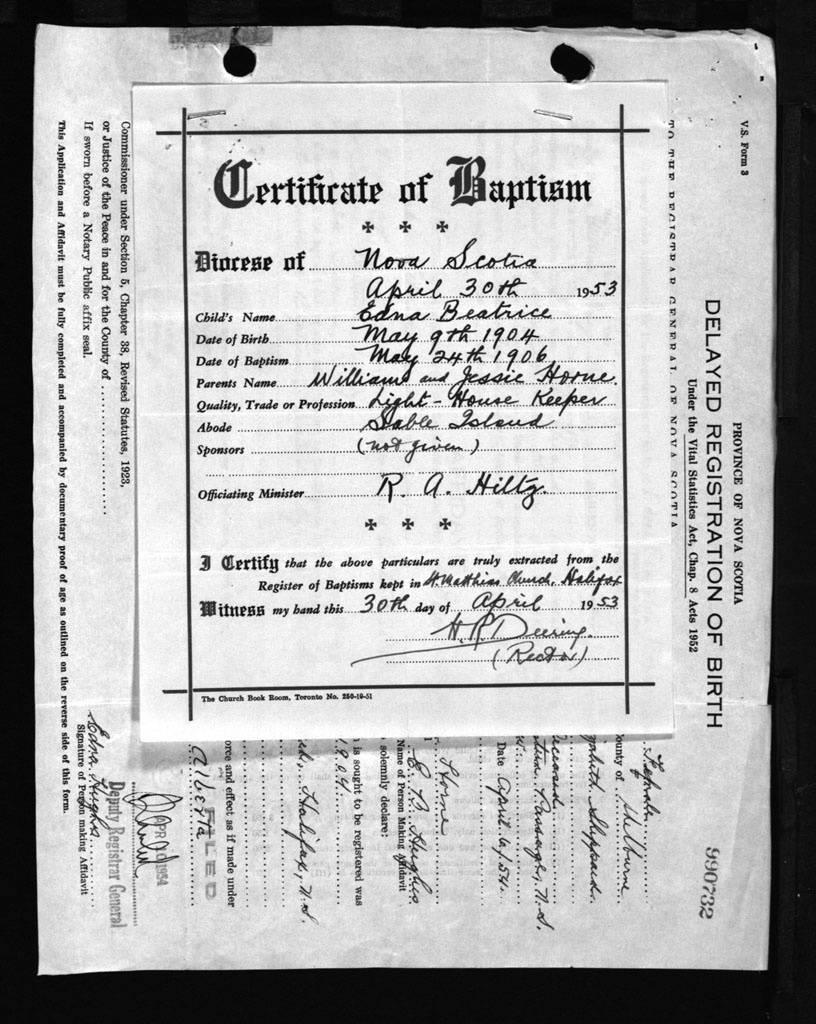 Certificate of Baptism
Diocese of Nova Scotia
April 30th 1953
Child's Name Edna Beatrice
Date of Birth May 9th 1904
Date of Baptism May 24th 1906
Parents Name William and Jessie Horne.
Quality, Trade or Profession Light-House Keeper
Abode Sable Island
Sponsors (not given)
Officiating Minister R. A. Hiltz.
I Certify that the above particulars are truly extracted from the
Register of Baptisms kept in St Matthias Church, Halifax
Witness my hand this 30th day of April 1953
H. R. Deering.
(Rector)
The Church Book Room, Toronto No. 250-19-51
V.S. Form 3
PROVINCE OF NOVA SCOTIA
DELAYED REGISTRATION OF BIRTH
Under the Vital Statistics Act, Chap. 8 Acts 1952
TO THE REGISTRAR GENERAL OF NOVA SCOTIA
990732
ounty of Shelburne
Sheppard
eceased
Passage, N.S.
Date April 6/54
Horne
E. B. Hughes
Name of Person Making Affidavit
solemnly declare:
h is sought to be registered was
1904
Halifax, N.S.
orce and effect as if made under
FILED
Alberta
APR 10 1954
Deputy Registrar General
Edna Hughes
Signature of Person making Affidavit
Commissioner under Section 5, Chapter 38, Revised Statutes, 1923,
or Justice of the Peace in and for the County of
If sworn before a Notary Public affix seal.
This Application and Affidavit must be fully completed and accompanied by documentary proof of age as outlined on the reverse side of this form.